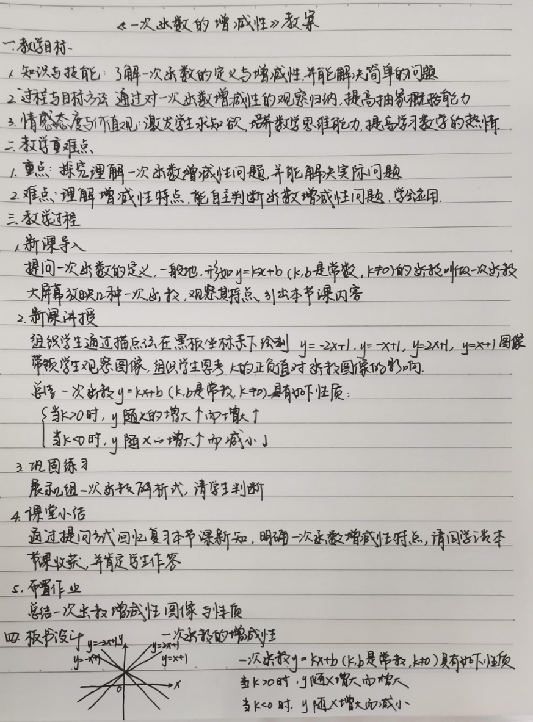 《一次函数的增减性》教案
一.教学目标
1.知识与技能：了解一次函数的定义与增减性,并能解决简单的问题
2.过程与目标方法 通过对一次函数增减性的观察归纳,提高抽象概括能力
3.情感态度与价值观:激发学生求知欲,培养数学思维能力,提高学习数学的热情
二.教学重难点
1.重点:探究理解一次函数增减性问题,并能解决实际问题
2.难点:理解增减性特点,能自主判断函数增减性问题,学会应用
三.教学过程
1.新课导入
提问一次函数的定义,一般地,形如y=kx+b(k,b是常数,k≠0)的函数叫做一次函数
大屏幕放映几种一次函数,观察其特点,引出本节课内容
2.新课讲授
组织学生通过描点法在黑板坐标系下绘制 y=-2x+1,y=-x+1,y=2x+1,y=x+1图像
带领学生观察图像,组织学生思考k的正负值对函数图像的影响.
总结:一次函数y=kx+b(k,b是常数,k≠0)具有如下性质:
当k>0时,y随x的增大↑而增大↑
当k<0时,y随x的增大↑而减小↓
3.巩固练习
展示几组一次函数解析式,请学生判断
4.课堂小结
通过提问方式回忆复习本节课新知,明确一次函数增减性特点,请同学谈本
节课收获,并肯定学生作答
5.布置作业
总结一次函数增减性图像与性质
四.板书设计 一次函数的增减性
y=-2x+1 y y=2x+1
y=-x+1 y=x+1
0 x
一次函数y=kx+b(k,b是常数,k≠0)具有如下性质
当k>0时,y随x增大而增大
当k<0时,y随x增大而减小